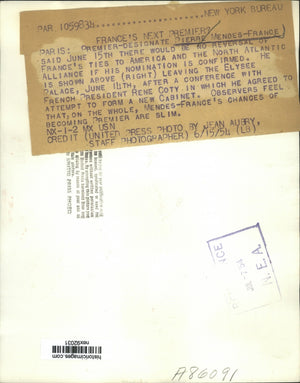 PAR 1059834
NEW YORK BUREAU
FRANCE'S NEXT PREMIER?
PARIS: PREMIER-DESIGNATE PIERRE MENDES-FRANCE
SAID JUNE 15TH THERE WOULD BE NO REVERSAL OF
FRANCE'S TIES TO AMERICA AND THE NORTH ATLANTIC
ALLIANCE IF HIS NOMINATION IS CONFIRMED. HE
IS SHOWN ABOVE (RIGHT) LEAVING THE ELYSEE
PALACE, JUNE 14TH, AFTER A CONFERENCE WITH
FRENCH PRESIDENT RENE COTY IN WHICH HE AGREED TO
ATTEMPT TO FORM A NEW CABINET. OBSERVERS FEEL
THAT, ON THE WHOLE, MENDES-FRANCE'S CHANGES OF
BECOMING PREMIER ARE SLIM.
NX-1-2 MX USN
CREDIT (UNITED PRESS PHOTO BY JEAN AUBRY,
STAFF PHOTOGRAPHER) 6/15/54 (LB)
N.E.A.
historicimages.com
A86091